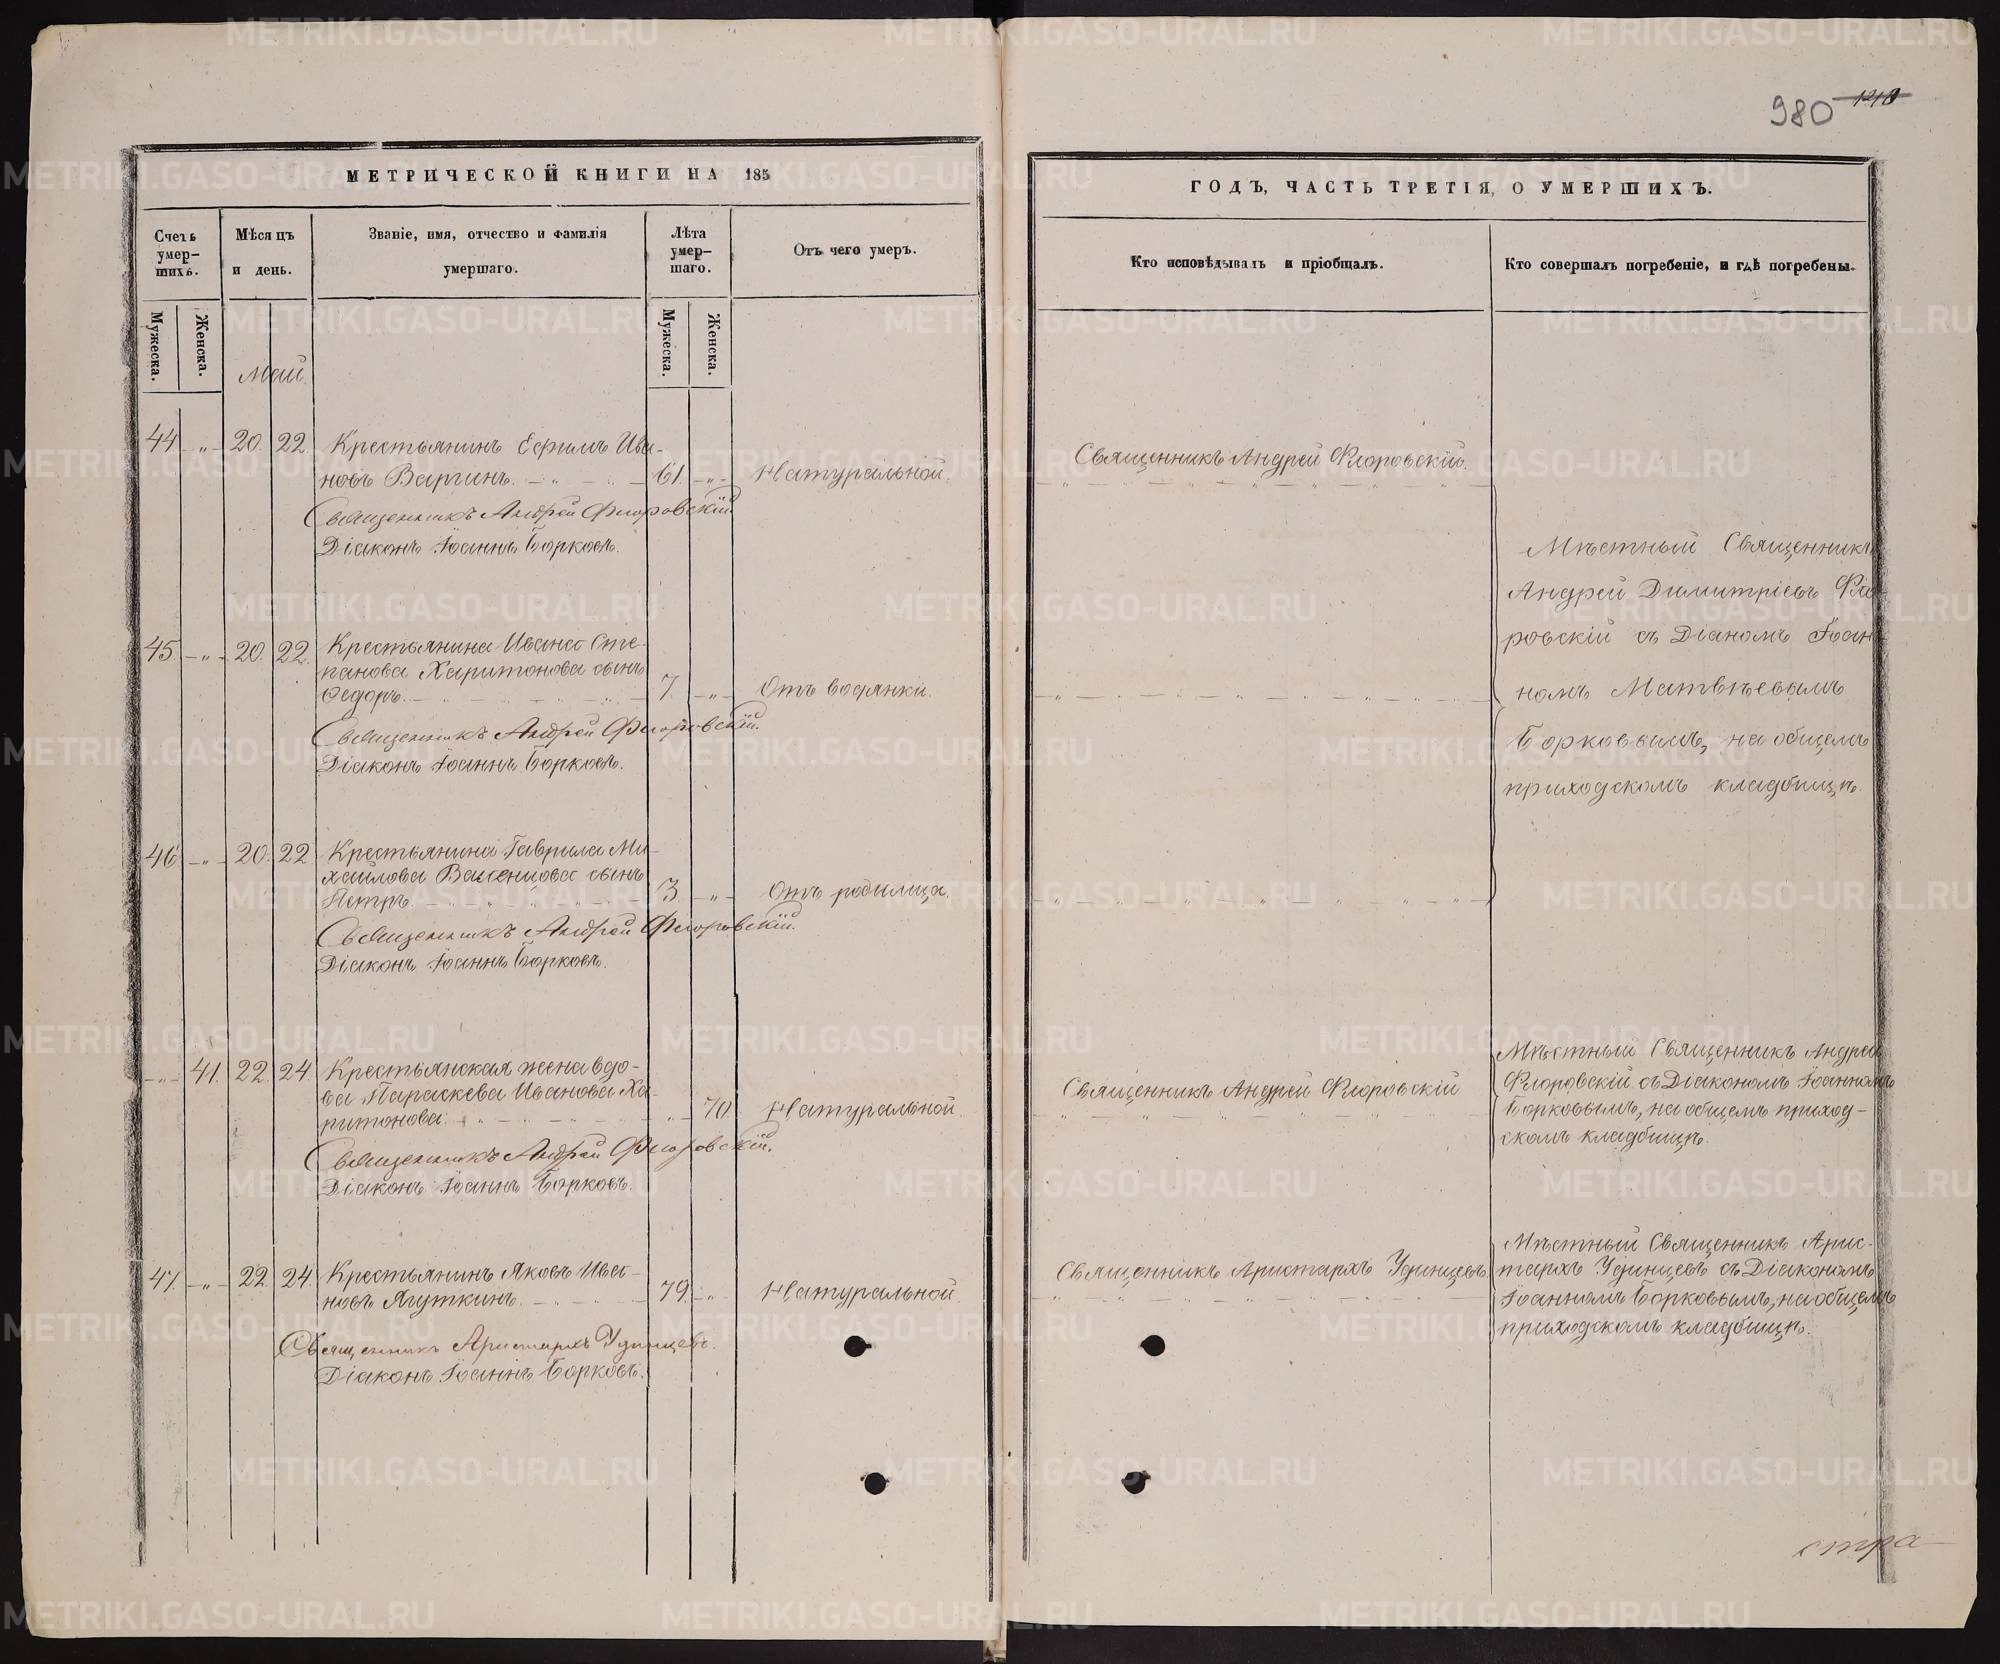 980 1218
МЕТРИЧЕСКОЙ КНИГИ НА 185
Счетъ умер-
шихъ.
Мѣсяцъ
и день.
Званіе, имя, отчество и фамилія
умершаго.
Лѣта
умер-
шаго.
Отъ чего умеръ.
Мужеска.
Женска.
Мужеска.
Женска.
Май.
44 -"- 20. 22. Крестьянинъ Ефимъ Ива-
новъ Варгинъ. 61. -"- Натуральной.
Священникъ Андрей Флоровскій.
Діаконъ Іоаннъ Борковъ.
45 -"- 20. 22. Крестьянина Ивана Сте-
панова Харитонова сынъ
Ѳедоръ. 7. -"- Отъ водянки.
Священникъ Андрей Флоровскій.
Діаконъ Іоаннъ Борковъ.
46 -"- 20. 22. Крестьянина Гаврила Ми-
хайлова сынъ
Петръ. 3. -"- Отъ родимца.
Священникъ Андрей Флоровскій.
Діаконъ Іоаннъ Борковъ.
-"- 41. 22. 24. Крестьянская жена вдо-
ва Параскева Иванова Ха-
ритонова. -"- 70. Натуральной.
Священникъ Андрей Флоровскій.
Діаконъ Іоаннъ Борковъ.
47. -"- 22. 24. Крестьянинъ Яковъ Ива-
новъ Ягуткинъ. 79. -"- Натуральной.
Священникъ Аристархъ Удинцевъ.
Діаконъ Іоаннъ Борковъ.
ГОДЪ, ЧАСТЬ ТРЕТІЯ, О УМЕРШИХЪ.
Кто исповѣдывалъ и пріобщалъ.
Кто совершалъ погребеніе, и гдѣ погребены.
Священникъ Андрей Флоровскій.
Мѣстный Священникъ
Андрей Димитріевъ Фло-
ровскій съ Діаномъ Іоан-
номъ Матвѣевымъ
Борковымъ, на общемъ
приходскомъ кладбищѣ.
Священникъ Андрей Флоровскій
Мѣстный Священникъ Андрей
Флоровскій съ Діакономъ Іоанномъ
Борковымъ, на общемъ приход-
скомъ кладбищѣ.
Священникъ Аристархъ Удинцевъ.
Мѣстный Священникъ Арис-
тархъ Удинцевъ съ Діакономъ
Іоанномъ Борковымъ, на общемъ
приходскомъ кладбищѣ.
стра
METRIKI.GASO-URAL.RU